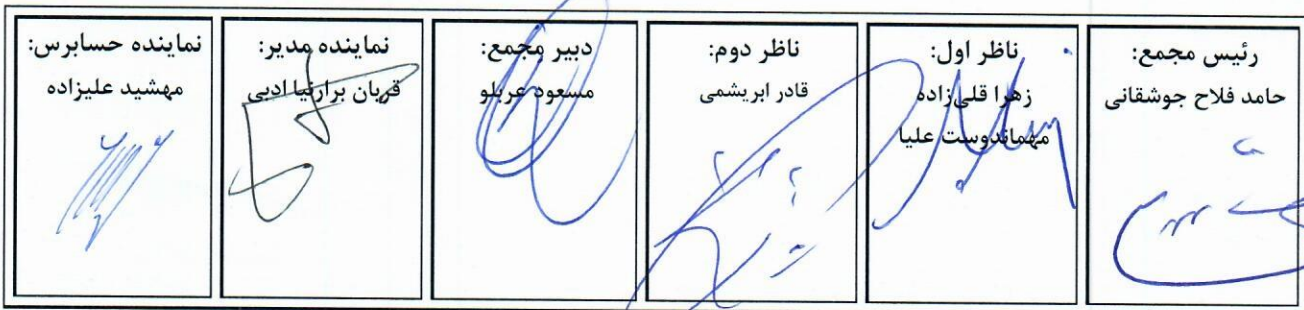 رئیس مجمع:
حامد فلاح جوشقانی
ناظر اول:
زهرا قلی‌زاده
مهماندوست علیا
ناظر دوم:
قادر ابریشمی
دبیر مجمع:
مسعود عربلو
نماینده مدیر:
قربان برارنیا ادبی
نماینده حسابرس:
مهشید علیزاده